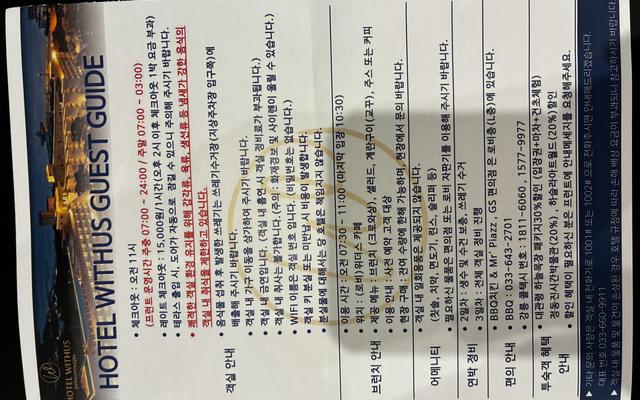 HOTEL WITHUS
HOTEL WITHUS GUEST GUIDE
객실 안내
• 체크아웃 : 오전 11시
(프런트 운영시간 주중 07:00 ~ 24:00 / 주말 07:00 ~ 03:00)
• 레이트 체크아웃 : 15,000원/1시간 (오후 2시 이후 체크아웃 1박 요금 부과)
• 테라스 출입 시, 도어가 자동으로 잠길 수 있으니 주의해 주시기 바랍니다.
• 쾌적한 객실 환경 유지를 위해 갑각류, 육류, 생선류 등 냄새가 강한 음식의
객실 내 취식을 제한하고 있습니다.
• 음식물 섭취 후 발생한 쓰레기는 쓰레기수거장(지상주차장 입구쪽)에
배출해 주시기 바랍니다.
• 객실 내 가구 이동을 삼가하여 주시기 바랍니다.
• 객실 내는 금연입니다. (객실 내 흡연 시 객실 정비료가 부과됩니다.)
• 객실 내 취사는 불가합니다. (주의 : 화재경보 및 사이렌이 울릴 수 있습니다.)
• WIFI 이름은 객실 번호 입니다. (비밀번호는 없습니다.)
• 객실 키 분실 또는 미반납 시 비용이 발생합니다.
• 유실물에 대해서는 당 호텔은 책임지지 않습니다.
브런치 안내
• 이용 시간 : 오전 07:30 ~ 11:00 (마지막 입장 10:30)
• 위치 : (로비)위더스 카페
• 제공 메뉴 : 브런치 (크로와상), 샐러드, 계란구이(교꾸), 주스 또는 커피
• 이용 안내 : 사전 예약 고객 대상
• 현장 구매 : 잔여 수량에 한해 가능하며, 현장에서 문의 바랍니다.
어메니티
객실 내 일회용품은 제공되지 않습니다.
(칫솔, 치약, 면도기, 린스, 슬리퍼 등)
필요하신 물품은 편의점 또는 로비 자판기를 이용해 주시기 바랍니다.
연박 정비
2일차 : 생수 및 수건 보충, 쓰레기 수거
3일차 : 전체 객실 정비 진행
편의 안내
• BBQ치킨 & Mr' Piazz, GS 편의점 은 로비층(L층)에 있습니다.
• BBQ : 033-643-2701
• 강릉 콜택시 번호 : 1811-6060 , 1577-9977
투숙객 혜택
안내
• 대관령 하늘목장 패키지30%할인 (입장권+마차+건초체험)
• 정동진시간박물관(20%) , 하슬라아트월드(20%)할인
• 할인 혜택이 필요하신 분은 프런트에 안내메세지를 요청해주세요.
▶ 기타 문의 사항은 객실 내 전화기로 1001# 또는 1002# 으로 전화주시면 안내해드리겠습니다.
대표 번호 033-660-991
▶ 객실 내 물품 및 물건이 손상될 경우 호텔 규정에 따라 손해 배상 요금이 부과되니 참고하시기 바랍니다.